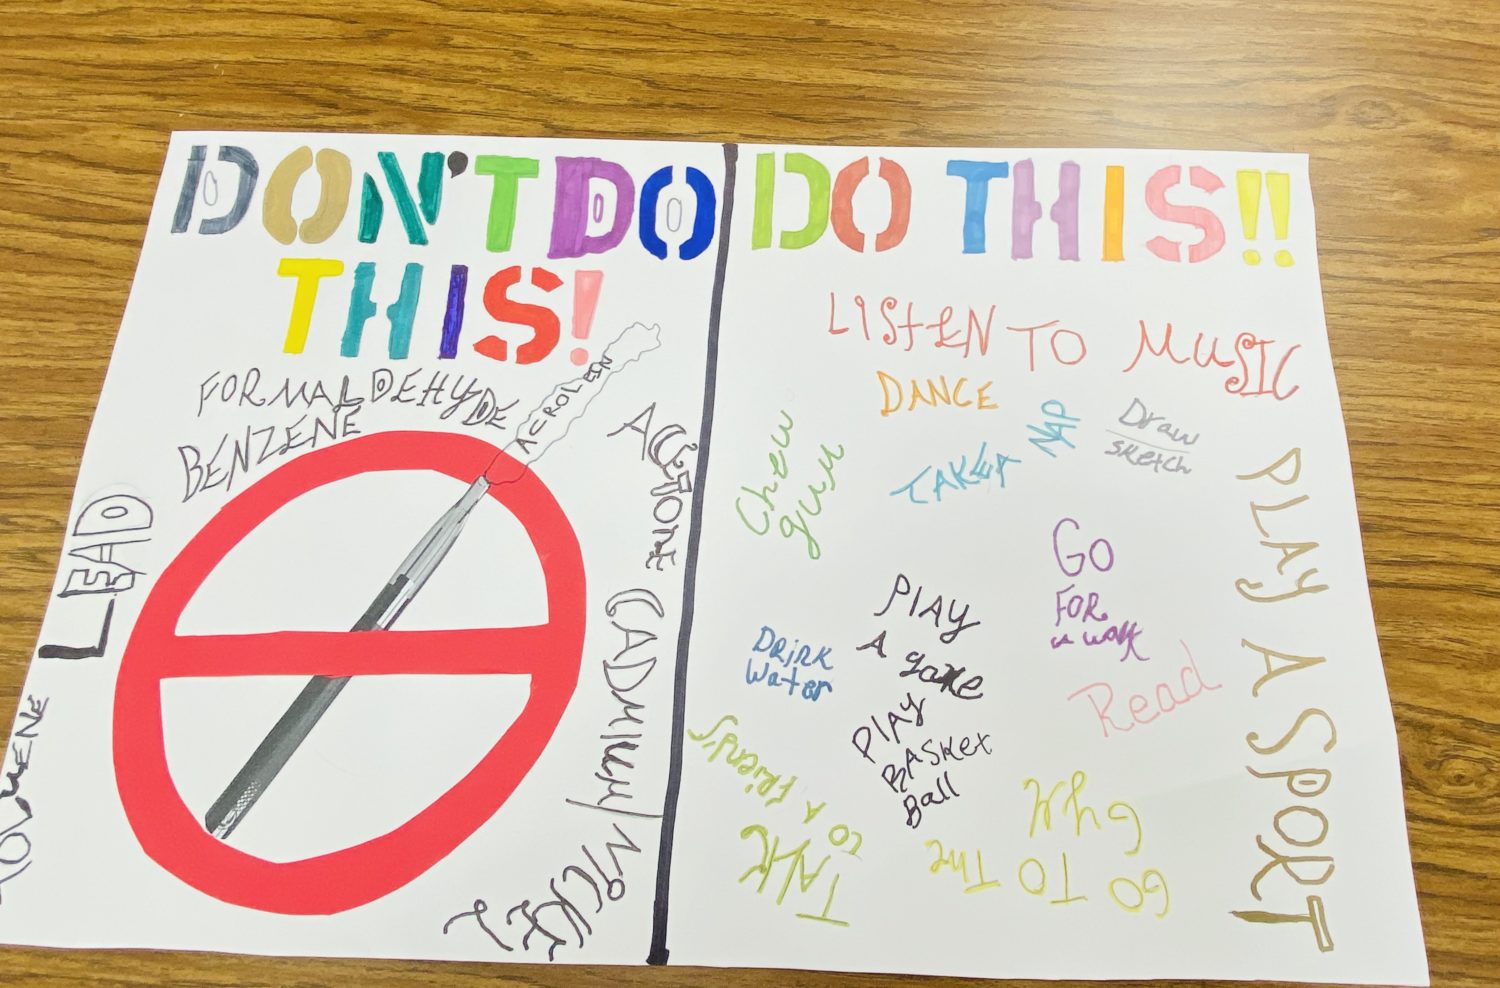 DON'T DO
THIS!
FORMALDEHYDE
BENZENE
ACROLEIN
ACETONE
LEAD
CADMIUM/NICKEL
TOLUENE
DO THIS!!
LISTEN TO MUSIC
DANCE
TAKE A NAP
Draw
sketch
Chew
gum
PLAY A SPORT
GO
FOR
a walk
PLAY
A game
DRINK
Water
Read
PLAY
BASKET
Ball
TALK
to A friend's
GO TO THE
GYM